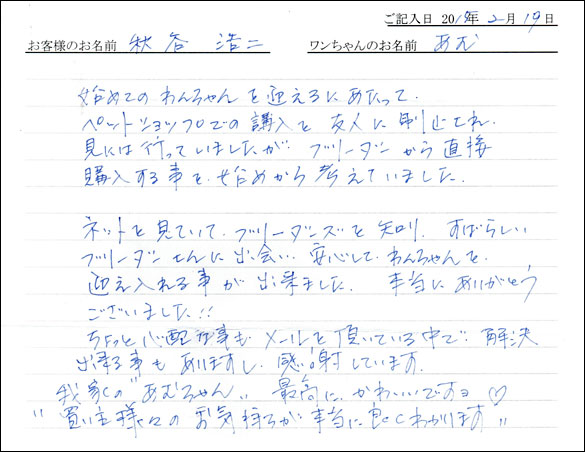 ご記入日 2019年2月19日
お客様のお名前 秋谷 浩二 ワンちゃんのお名前 あむ
始めてのわんちゃんを迎えるにあたって、
ペットショップでの講入を友人に制止され、
見には行っていましたが ブリーダーから直接
購入する事を、始めから考えていました。
ネットを見ていて、ブリーダーズを知り、すばらしい
ブリーダーさんに出会い、安心して、わんちゃんを、
迎え入れる事が出来ました。 本当にありがとう
ございました!!
ちょっと心配な事も メールを頂いている中で 解決
出来る事もありますし、感謝しています。
我家の"あむちゃん" 最高に、かわいいですョ♡
"買い主様々のお気持ちが本当に良くわかります"